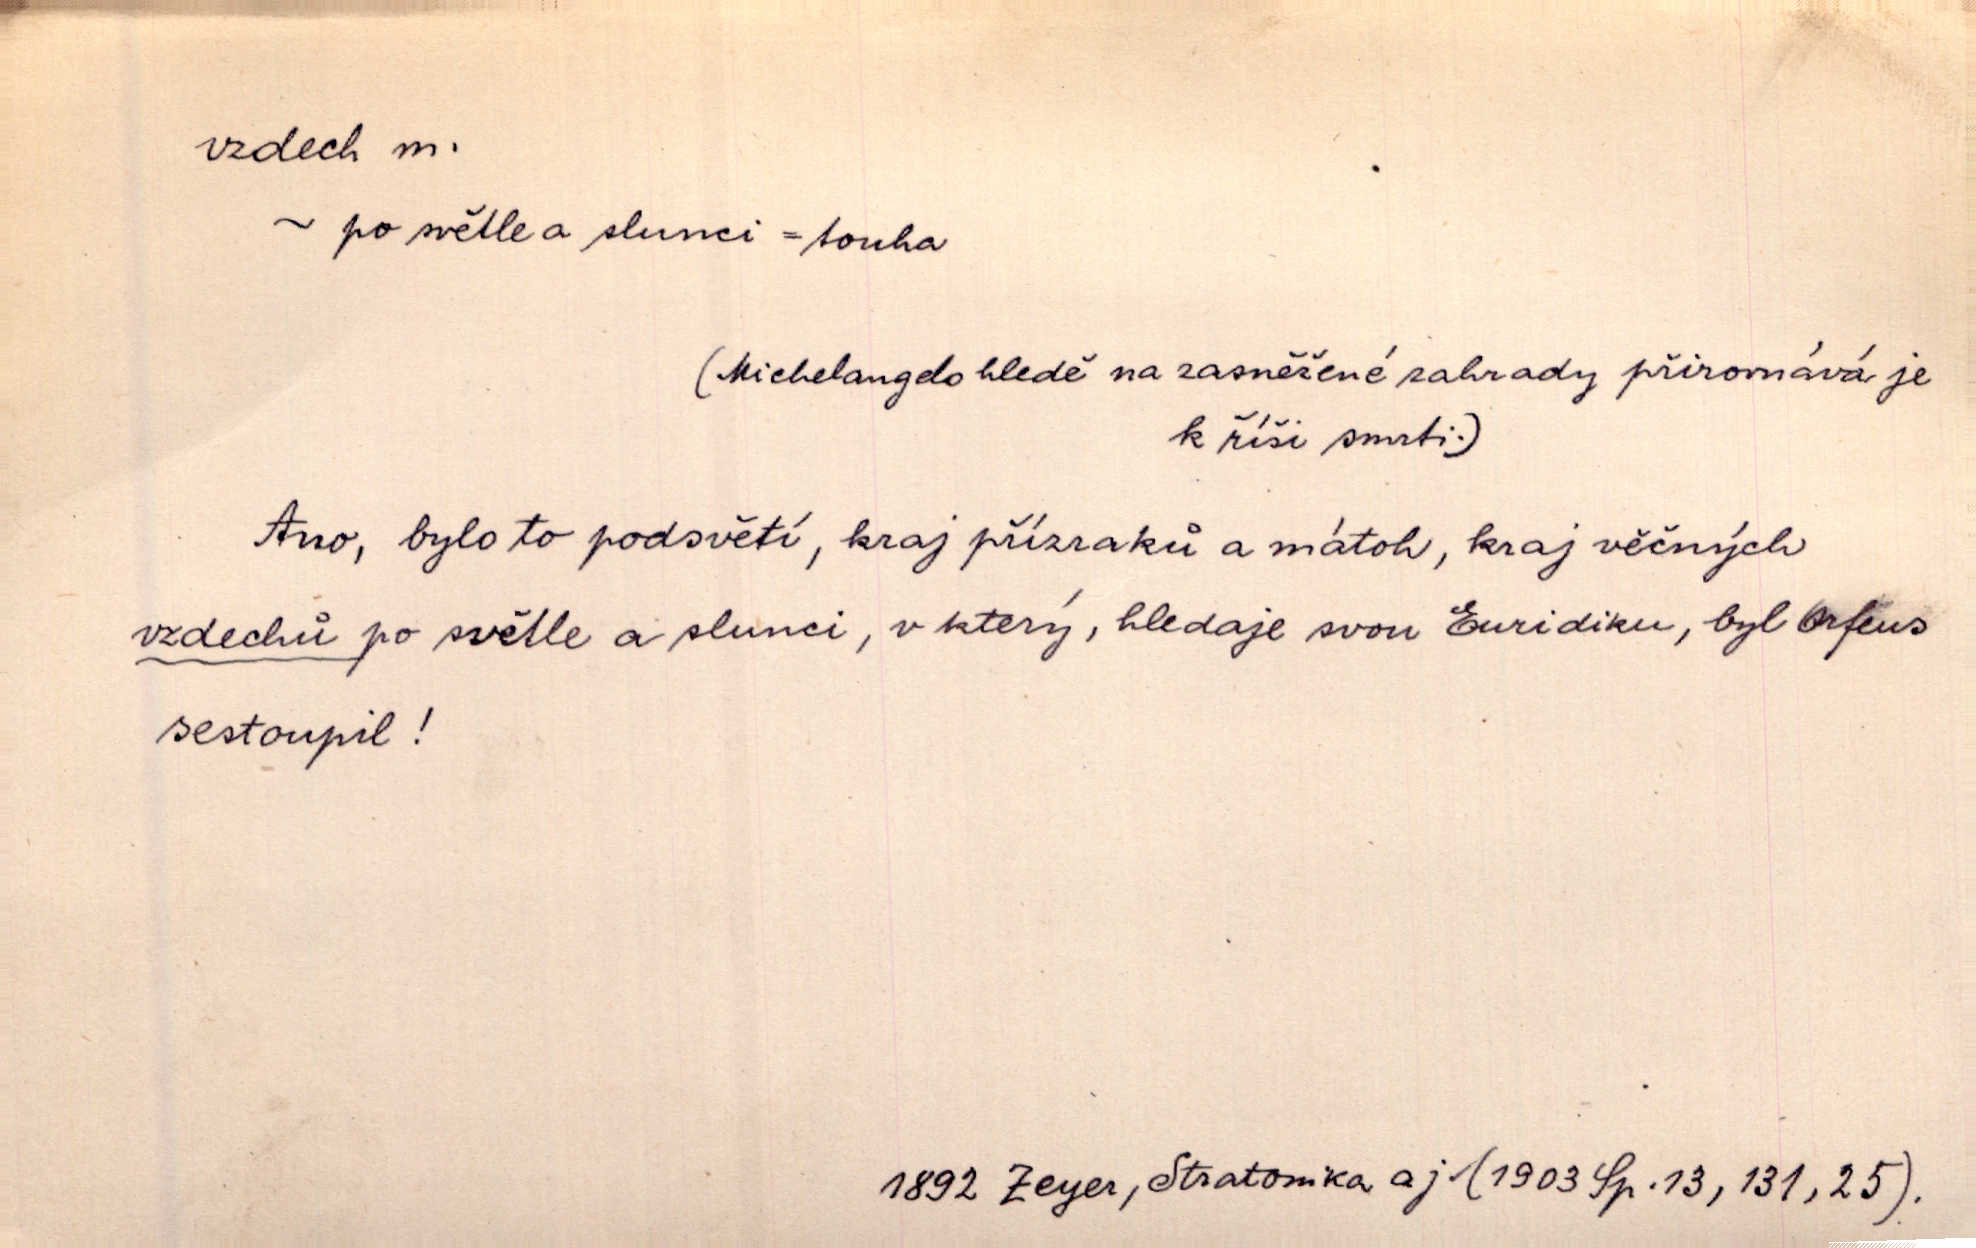 vzdech m.
~ po světle a slunci = touha
(Michelangelo hledě na zasněžené zahrady přirovnává je
k říši smrti.)
Ano, bylo to podsvětí, kraj přízraků a mátoh, kraj věčných
vzdechů po světle a slunci, v který, hledaje svou Euridiku, byl Orfeus
sestoupil!
1892 Zeyer, Stratonika a j. (1903 Sp. 13, 131, 25).